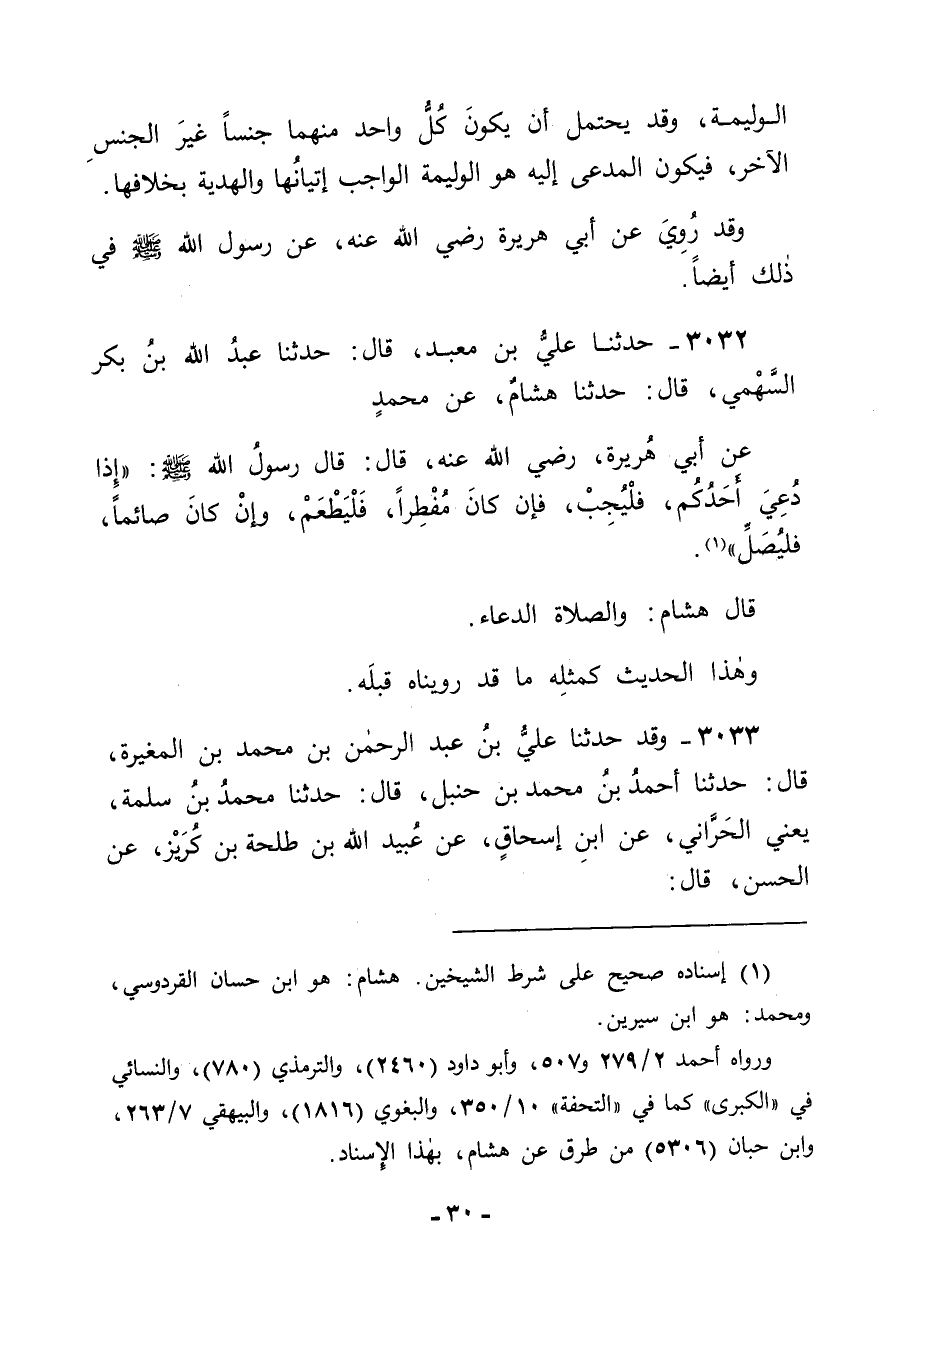 الوليمة، وقد يحتمل أن يكونَ كُلُّ واحد منهما جنساً غيرَ الجنسِ
الآخر، فيكون المدعى إليه هو الوليمة الواجب إتيانُها والهدية بخلافها.
وقد رُوِيَ عن أبي هريرة رضي الله عنه، عن رسول الله ﷺ في
ذٰلك أيضاً.
٣٠٣٢ ـ حدثنا عليُّ بن معبد، قال: حدثنا عبدُ الله بنُ بكر
السَّهْمي، قال: حدثنا هشامٌ، عن محمدٍ
عن أبي هُريرة، رضي الله عنه، قال: قال رسولُ الله ﷺ: «إِذا
دُعِيَ أَحَدُكُم، فلْيُجِبْ، فإن كانَ مُفْطِراً، فَلْيَطْعَمْ، وإنْ كانَ صائماً،
فليُصَلِّ»(١).
قال هشام: والصلاة الدعاء.
وهٰذا الحديث كمثلِه ما قد رويناه قبلَه.
٣٠٣٣ ـ وقد حدثنا عليُّ بنُ عبد الرحمٰن بن محمد بن المغيرة،
قال: حدثنا أحمدُ بنُ محمد بن حنبل، قال: حدثنا محمدُ بنُ سلمة،
يعني الحَرَّاني، عن ابنِ إسحاقٍ، عن عُبيد الله بن طلحة بن كُرَيْز، عن
الحسن، قال:
(١) إسناده صحيح على شرط الشيخين. هشام: هو ابن حسان القردوسي،
ومحمد: هو ابن سيرين.
ورواه أحمد ٢٧٩/٢ و٥٠٧، وأبو داود (٢٤٦٠)، والترمذي (٧٨٠)، والنسائي
في «الكبرى» كما في «التحفة» ٣٥٠/١٠، والبغوي (١٨١٦)، والبيهقي ٢٦٣/٧،
وابن حبان (٥٣٠٦) من طرق عن هشام، بهٰذا الإسناد.
ـ ٣٠ ـ